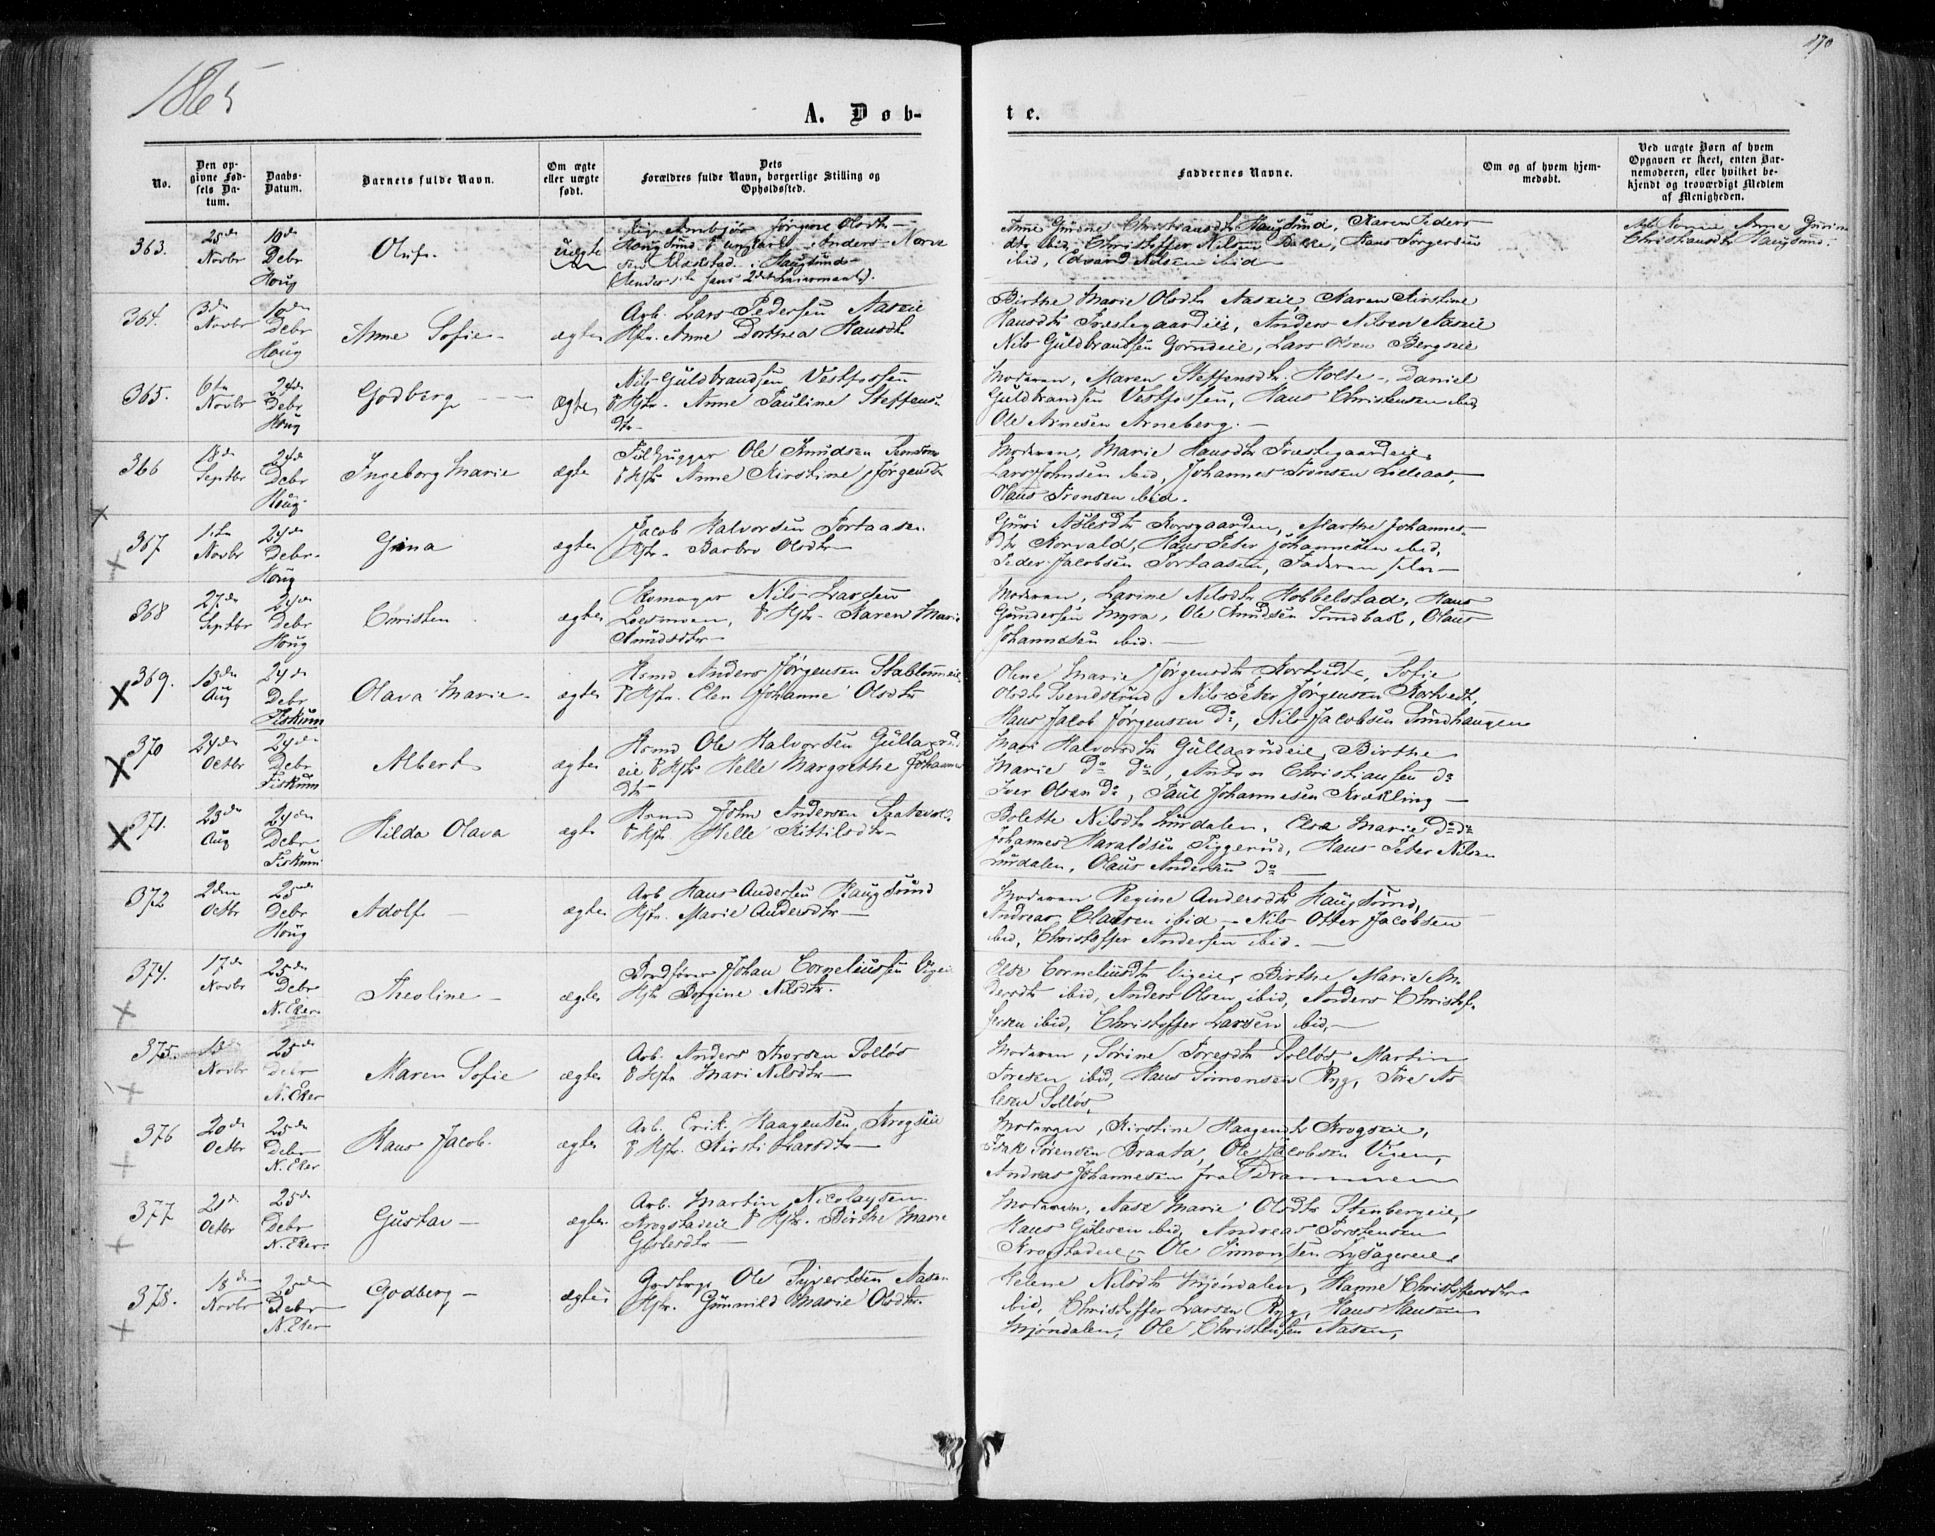 1865
170
A. Døb-
te.
No.
Den op-
givne Fød-
sels Da-
tum.
Daabs-
Datum.
Barnets fulde Navn.
Om ægte
eller uægte
født.
Dets
Forældres fulde Navn, borgerlige Stilling og
Opholdssted.
Faddernes Navne.
Om og af hvem hjem-
medøbt.
Ved uægte Børn af hvem
Opgaven er skeet, enten Bar-
nemoderen, eller hvilket be-
kjendt og troværdigt Medlem
af Menigheden.
363.
25de
Novbr
10de
Debr
Houg
Oluf
uægte
Jørgine Olsdtr
Haugsund & ungkarl Anders
Haugsund
Anne Gurine Christiansdtr Haugsund, Karen Peders
dtr ibid, Christoffer Nilsen Bakke, Hans Torgersen
ibid, Edvard Nilsen ibid
Anne Gurine
Christiansdtr Haugsund.
364.
3de
Novbr
10de
Debr
Houg
Anne Sofie
ægte
Arb. Lars Pedersen Aaseie
Hstr. Anne Dorthea Hansdtr
Birthe Marie Olsdtr Aaseie, Karen Kirstine
Hansdtr Præstegaardeie, Anders Nilsen Aaseie
Nils Guldbrandsen, Lars Olsen Bergseie
365.
6te
Novbr
24de
Debr
Houg
Godberg
ægte
Nils Guldbrandsen Vestfossen
& Hstr. Anne Pauline Steffens-
dtr
Moderen, Maren Steffensdtr Holte, Daniel
Guldbrandsen Vestfossen, Hans Christensen ibid,
Ole Arnesen Arneberg.
366
18de
Septbr
24de
Debr
Houg
Ingeborg Marie
ægte
Ole Knudsen
& Hstr Anne Kirstine Jørgensdtr
Moderen, Marie Hansdtr Præstegaardeie,
Lars Johnsen ibid, Johannes Tronsen Lilleaas,
Olaus Tronsen ibid.
367
1ste
Novbr
24de
Debr
Houg
Gina
ægte
Jacob Halvorsen Portaasen
Hstr. Barbro Olsdtr
Guri Aslesdtr Korsgaarden, Marthe Johannes-
dtr Korvald, Hans Peter Johannesen ibid,
Peder Jacobsen Portaasen, Faderen selv
368
27de
Septbr
24de
Debr
Houg
Christen
ægte
Skomager Nils Larsen
Loesmoen, & Hstr. Karen Marie
Knudsdtr
Moderen, Lavine Nilsdtr Hobbelstad, Hans
Gundersen Myra, Ole Knudsen Sundbak, Olaus
Johannesen ibid.
369.
13de
Aug
24de
Debr
Fiskum
Olava Marie
ægte
Hsmd Anders Jørgensen Stablumeie
& Hstr. Elen Johanne Olsdtr
Oline Marie Jørgensdtr Kortvedt, Sofie
Olsdtr, Nils Peter Jørgensen Kortvedt,
Hans Jacob Jørgensen Do, Nils Jacobsen Sundhaugen
370
24de
Octbr
24de
Debr
Fiskum
Albert
ægte
Hsmd Ole Halvorsen Gullagrud
eie & Hstr Helle Margrethe Johannes
dtr
Mari Halvorsdtr Gullagrudeie, Birthe
Marie Do Do, Anton Christiansen Do
Iver Olsen Do, Paul Johannesen Krækling
371.
23de
Aug
24de
Debr
Fiskum
Hilda Olava
ægte
Hsmd John Andersen
& Hstr Helle Kittilsdtr
Bolette Nilsdtr Lurdalen, Else Marie Do Do
Johannes Haraldsen Piggerud, Hans Peter Nilsen
Lurdalen, Olaus Andersen Do
372
2den
Octbr
25de
Debr
Houg
Adolf
ægte
Arb. Hans Andersen Haugsund
Hstr. Marie Andersdtr
Moderen Regine Andersdtr Haugsund,
Andreas Clausen ibid, Nils Otter Jacobsen
ibid, Christoffer Andersen ibid.
374.
17de
Novbr
25de
Debr
N. Eker
Theoline
ægte
Johan Corneliussen Vigeie
Hstr Borgine Nilsdtr.
Else Corneliusdtr Vigeie, Birthe Marie An-
dersdtr ibid, Anders Olsen ibid, Anders Christof-
fersen ibid, Christoffer Larsen ibid,
375.
Novbr
25de
Debr
N. Eker
Maren Sofie
ægte
Arb. Anders Thorsen Solløs
& Hstr Mari Nilsdtr
Moderen, Sørine Toresdtr Solløs, Martin
Toresen ibid, Hans Simonsen Ryg, Tore As
lesen Solløs,
376
20de
Octbr
25de
Debr
N. Eker
Hans Jacob.
ægte
Arb. Erik Haagensen Krogseie
& Hstr. Kirsti Larsdtr
Moderen, Kirstine Haagensdtr Krogseie,
Isak Sørensen Braata, Ole Jacobsen Vigen,
Andreas Johannesen fra Drammen
377
21de
Octbr
25de
Debr
N. Eker.
Gustav
ægte.
Arb. Martin Nicolaysen
Krogstadeie & Hstr. Birthe Marie
Gislesdtr
Moderen, Aase Marie Olsdtr Stenbergeie,
Hans Gulesen ibid, Andreas Torstensen
Krogstadeie, Ole Simonsen Lysagereie,
378.
18de
Novbr
25de
Debr
N. Eker
Godberg
ægte
Gaardbrgr. Ole Syvertsen Aasen
Hstr. Gunnild Marie Olsdtr.
Helene Nilsdtr Mjøndalen, Hanne Christoffersdtr
ibid, Christoffer Larsen Ryg, Hans Hansen
Mjøndalen, Ole Christensen Aasen,